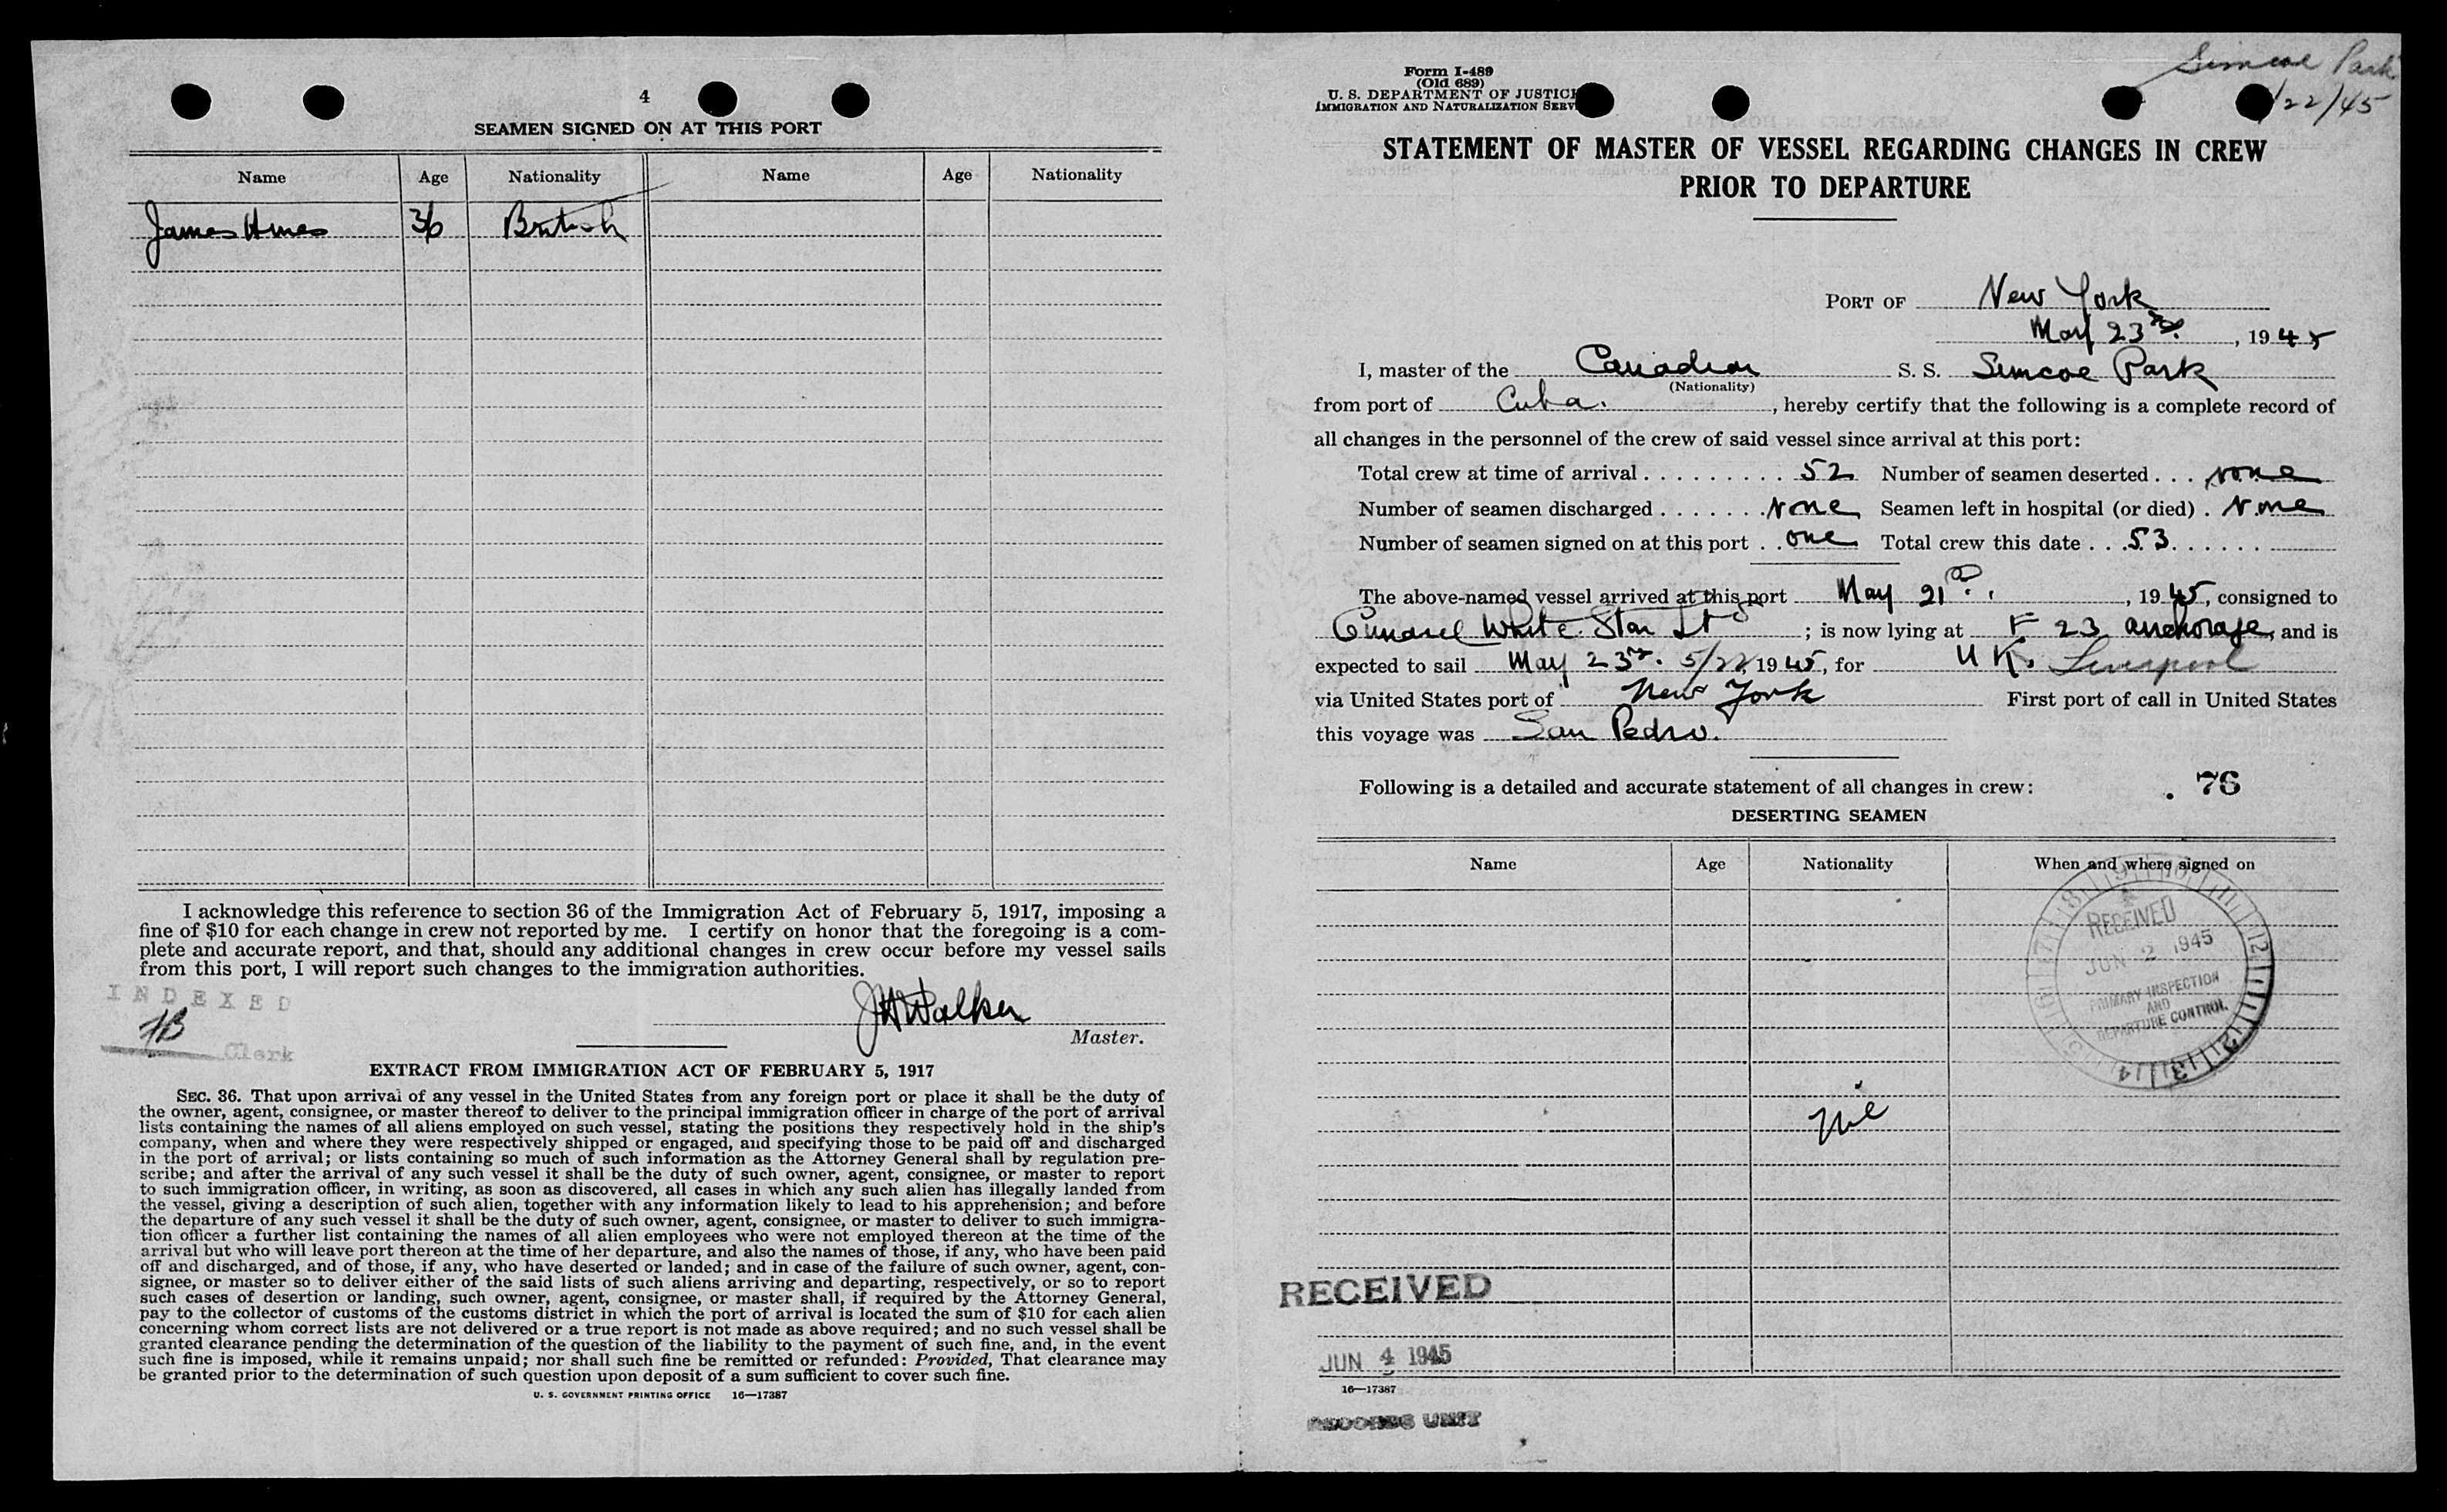 4
SEAMEN SIGNED ON AT THIS PORT
Name Age Nationality Name Age Nationality
James 36 British
I acknowledge this reference to section 36 of the Immigration Act of February 5, 1917, imposing a
fine of $10 for each change in crew not reported by me. I certify on honor that the foregoing is a com-
plete and accurate report, and that, should any additional changes in crew occur before my vessel sails
from this port, I will report such changes to the immigration authorities.
INDEXED
Clerk
JH Walker
Master.
EXTRACT FROM IMMIGRATION ACT OF FEBRUARY 5, 1917
SEC. 36. That upon arrival of any vessel in the United States from any foreign port or place it shall be the duty of
the owner, agent, consignee, or master thereof to deliver to the principal immigration officer in charge of the port of arrival
lists containing the names of all aliens employed on such vessel, stating the positions they respectively hold in the ship's
company, when and where they were respectively shipped or engaged, and specifying those to be paid off and discharged
in the port of arrival; or lists containing so much of such information as the Attorney General shall by regulation pre-
scribe; and after the arrival of any such vessel it shall be the duty of such owner, agent, consignee, or master to report
to such immigration officer, in writing, as soon as discovered, all cases in which any such alien has illegally landed from
the vessel, giving a description of such alien, together with any information likely to lead to his apprehension; and before
the departure of any such vessel it shall be the duty of such owner, agent, consignee, or master to deliver to such immigra-
tion officer a further list containing the names of all alien employees who were not employed thereon at the time of the
arrival but who will leave port thereon at the time of her departure, and also the names of those, if any, who have been paid
off and discharged, and of those, if any, who have deserted or landed; and in case of the failure of such owner, agent, con-
signee, or master so to deliver either of the said lists of such aliens arriving and departing, respectively, or so to report
such cases of desertion or landing, such owner, agent, consignee, or master shall, if required by the Attorney General,
pay to the collector of customs of the customs district in which the port of arrival is located the sum of $10 for each alien
concerning whom correct lists are not delivered or a true report is not made as above required; and no such vessel shall be
granted clearance pending the determination of the question of the liability to the payment of such fine, and, in the event
such fine is imposed, while it remains unpaid; nor shall such fine be remitted or refunded: Provided, That clearance may
be granted prior to the determination of such question upon deposit of a sum sufficient to cover such fine.
U. S. GOVERNMENT PRINTING OFFICE 16—17387
Simcoe Park
/22/45
Form I-489
(Old 689)
U. S. DEPARTMENT OF JUSTICE
IMMIGRATION AND NATURALIZATION SERV
STATEMENT OF MASTER OF VESSEL REGARDING CHANGES IN CREW
PRIOR TO DEPARTURE
PORT OF New York
May 23rd, 1945
I, master of the Canadian S. S. Simcoe Park
(Nationality)
from port of Cuba., hereby certify that the following is a complete record of
all changes in the personnel of the crew of said vessel since arrival at this port:
Total crew at time of arrival . . . . . . . . . . 52 Number of seamen deserted . . . none
Number of seamen discharged . . . . . . . none Seamen left in hospital (or died) . None
Number of seamen signed on at this port . . one Total crew this date . . . 53 . . . . . .
The above-named vessel arrived at this port May 21, 1945, consigned to
Cunard White Star Ltd; is now lying at F 23 anchorage, and is
expected to sail May 23rd. 5/22, 1945, for U.K. Liverpool
via United States port of New York First port of call in United States
this voyage was San Pedro.
Following is a detailed and accurate statement of all changes in crew:
. 76
DESERTING SEAMEN
Name Age Nationality When and where signed on
RECEIVED
JUN 2 1945
PRIMARY INSPECTION
AND
DEPARTURE CONTROL
Nil
RECEIVED
JUN 4 1945
16—17387
RECORDS UNIT